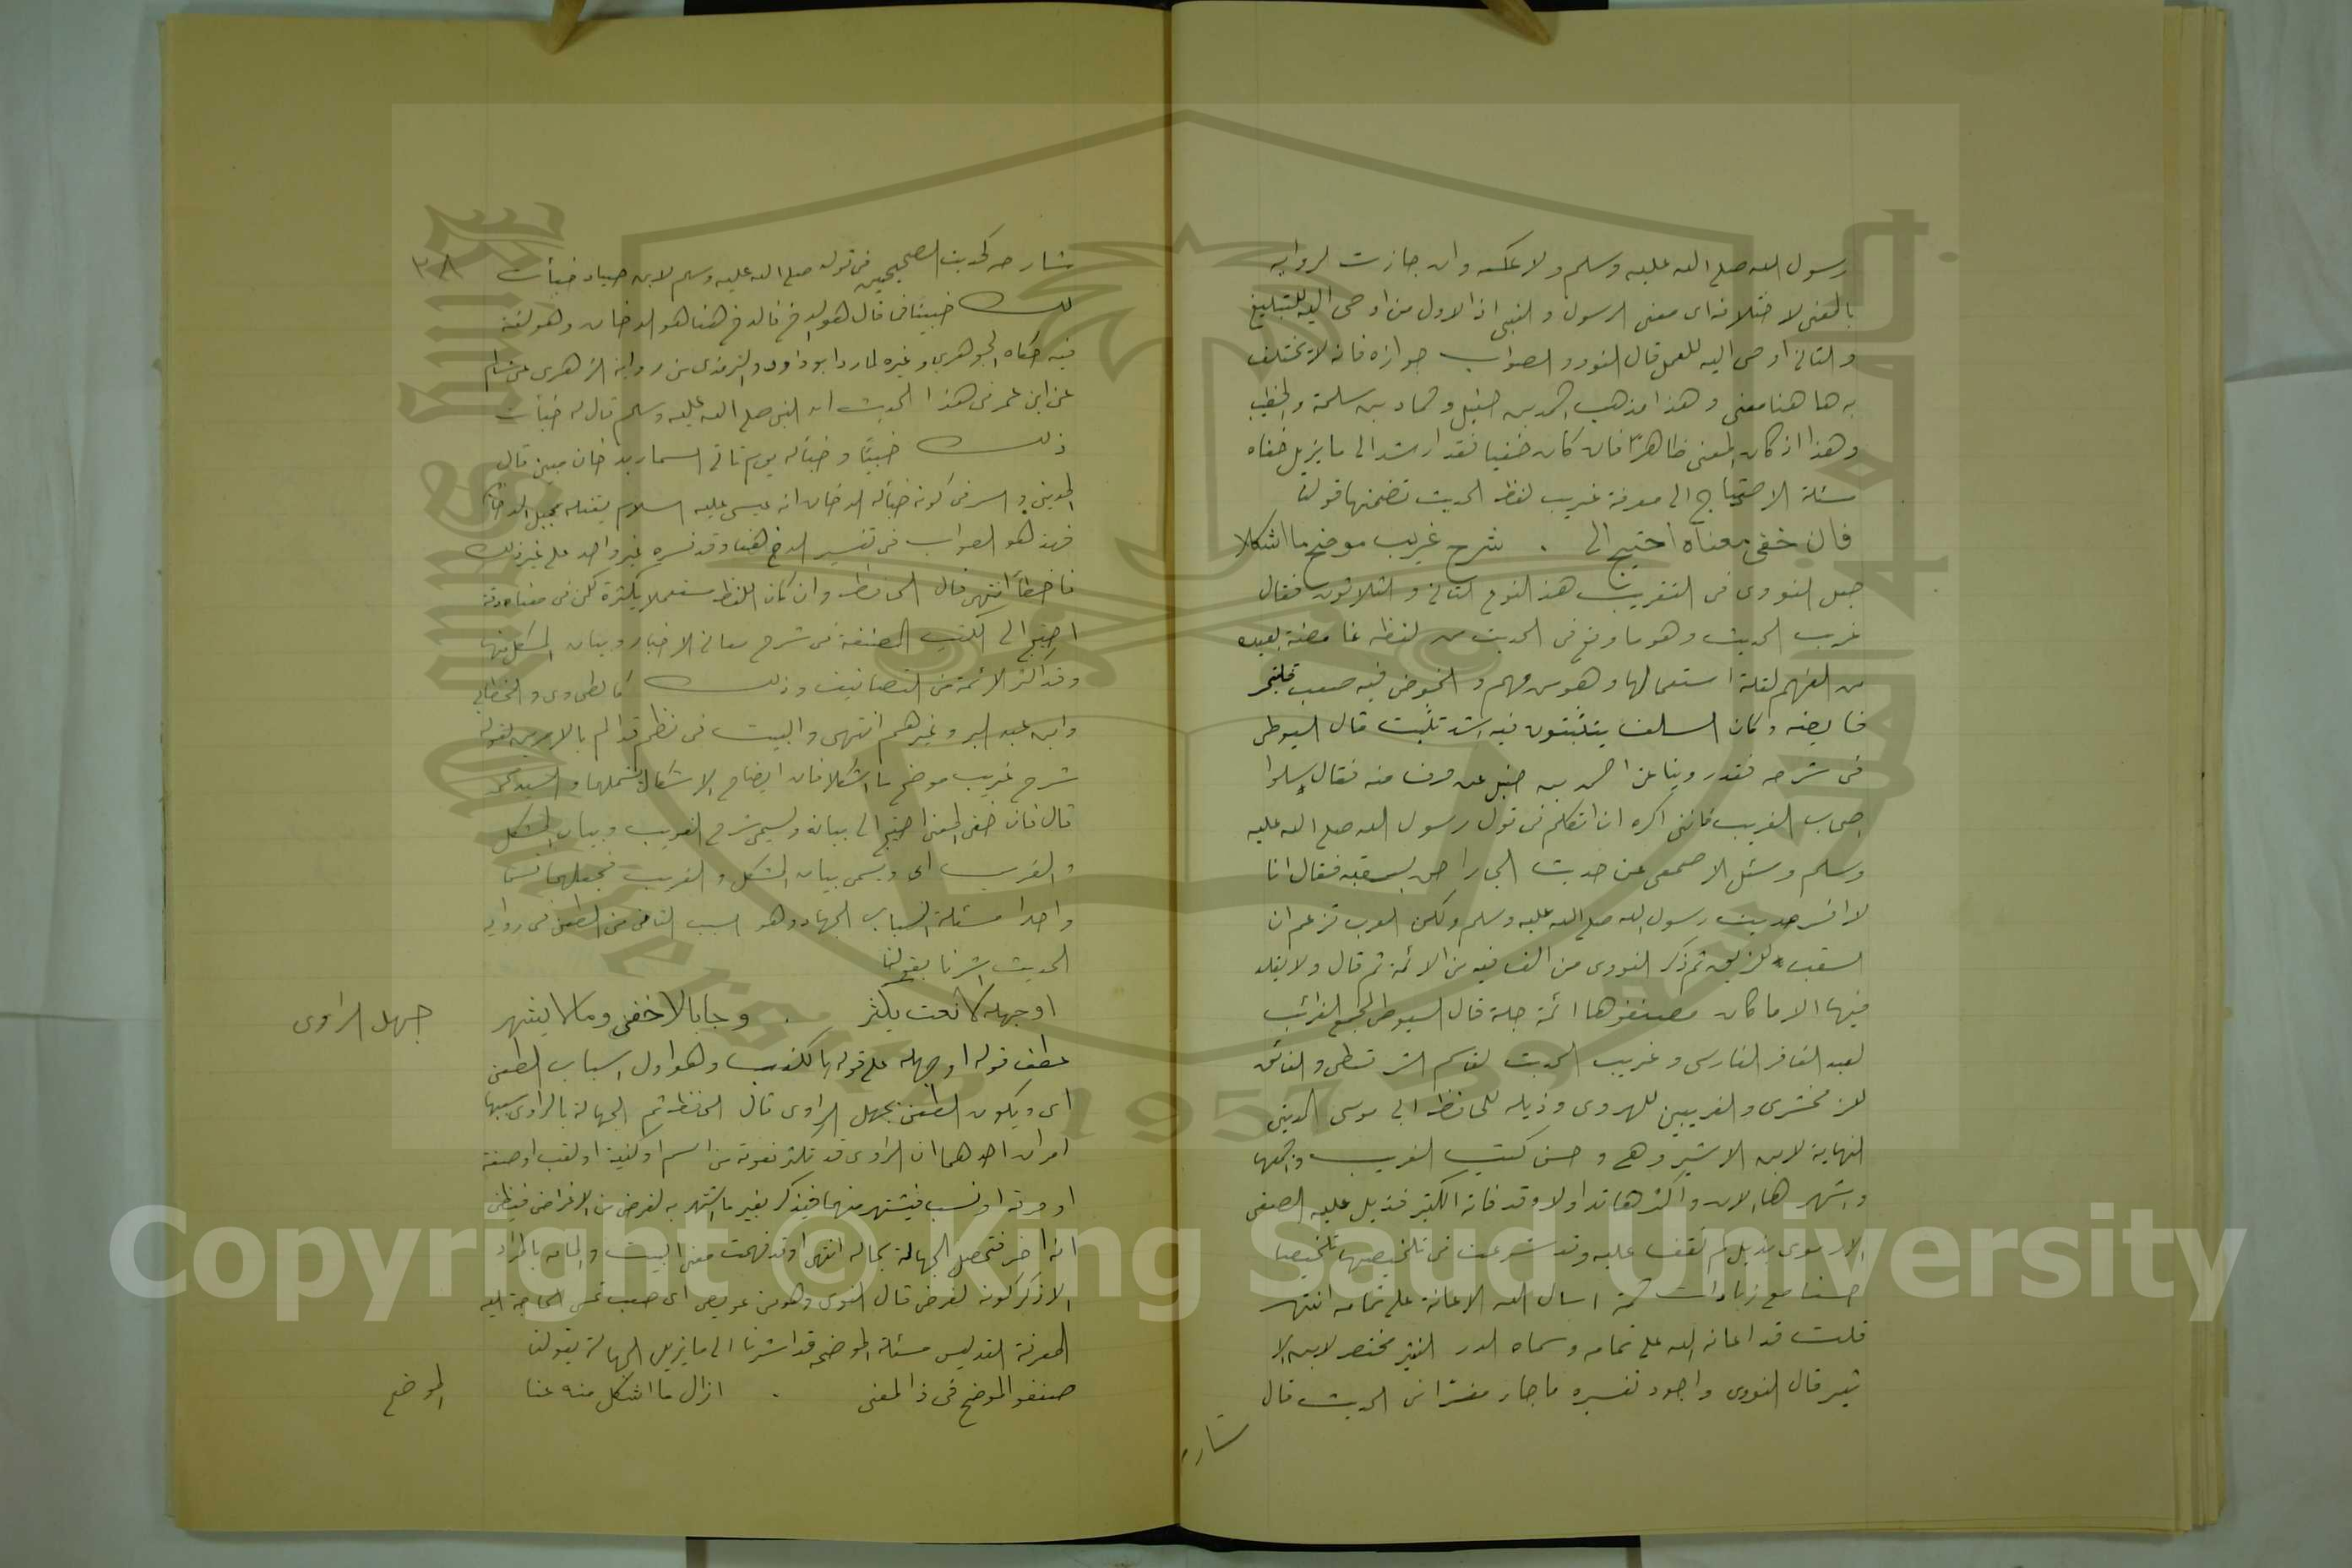 رسول الله صلى الله عليه وسلم ولا عكسه وان جازت الرواية
بالمعنى لاختلافه اى معنى الرسول والنبى اذ الاول من اوحى اليه للتبليغ
والثانى اوحى اليه للعمل قال النووى والصواب جوازه فانه لا يختلف
به ها هنا معنى وهذا مذهب احمد بن حنبل وحماد بن سلمة والخطيب
وهذا اذ كان المعنى ظاهرا فان كان خفيا فقد ارشد الى ما يزيل خفاه
مسئلة الاحتياج الى معرفة غريب لفظ الحديث تضمنها قولنا
فان خفى معناه احتيج الى . شرح غريب موضح ما اشكلا
جعل النووى فى التقريب هذا النوع الثانى والثلاثون فقال
غريب الحديث وهو ما وقع فى الحديث من لفظه غامضة بعيده
من الفهم لقلة استعمالها وهو من مهم والخوض فيه صعب فليتحر
خايضه وكان السلف يتثبتون فيه اشد تثبت قال السيوطى
فى شرحه فقد روينا عن احمد بن حنبل عن حرف منه فقال سلوا
اصحاب الغريب فاننى اكره ان اتكلم فى قول رسول الله صلى الله عليه
وسلم وسئل الاصمعى عن حديث الجار احق بسقبه فقال انا
لا افسر حديث رسول الله صلى الله عليه وسلم ولكن العرب تزعم ان
السقب اللزيق ثم ذكر النووى من الف فيه من الائمة ثم قال ولا يقلد
فيها الا ما كان مصنفوها ائمة جلة قال السيوطى المجمع الغرائب
لعبد الغافر الفارسى وغريب الحديث لقاسم السرقسطى والفائق
للزمخشرى والغريبين للهروى وذيله للحافظ ابى موسى المدينى
النهاية لابن الاثير وهى احسن كتب الغريب واجمعها
واشهرها الان واكثرها تداولا وقد فاته الكثير فذيل عليه الصفى
الارموى بذيل لم نقف عليه وقد شرعت فى تلخيصها تلخيصا
حسنا مع زيادات جمة اسال الله الاعانة على تمامه انتهى
قلت قد اعانه الله على تمامه وسماه الدر النثير مختصر لابن الا
ثير قال النووى واجود تفسيره ما جاء مفسرا فى الحديث قال
شارحه
شارحه كحديث الصحيحين فى قوله صلى الله عليه وسلم لابن صياد خبأت
٣٨
لك خبيئا فما قال هو الدخ فالدخ هنا هو الدخان وهو لغة
فيه حكاه الجوهرى وغيره لما روا ابو داود والترمذى من رواية الزهرى عن سالم
عن ابن عمر فى هذا الحديث ان النبى صلى الله عليه وسلم قال له خبأت
ذلك خبيئا وخبأ له يوم تاتى السماء بدخان مبين قال
المدينى والسر فى كونه خبأ له الدخان ان عيسى عليه السلام يقتله بجبل الدخان
فهذا هو الصواب فى تفسير الدخ هنا وقد فسره غير واحد على غير ذلك
فاخطأ انتهى قال الحافظ وان كان اللفظ مستعملا بكثرة لكن فى معناه دقة
احتيج الى الكتب المصنفة فى شرح معانى الاخبار وبيان المشكل منها
وقد اكثر الائمة من التصانيف وذلك كالطحاوى والخطابى
وابن عبد البر وغيرهم انتهى والبيت فى نظم قد الم بالامرين لقوله
شرح غريب موضح ما اشكلا فان ايضاح الاشكال يشملهما والسيد محمد
قال فان خفى المعنى احتيج الى بيانه ويسمى شرح الغريب وبيان المشكل
والغريب اى ويسمى بيان المشكل والغريب فجعلهما قسما
واحدا مسئلة اسباب الجهاله وهو السبب الثامن من الطعن فى رواية
الحديث اشرنا بقولنا
او جهله كان نعت يكثر . وجا بالاخفى وما لا يشهر
جهل الراوى
عطف قوله او جهله على قوله بالكذب وهو اول اسباب الطعن
اى ويكون الطعن بجهل الراوى قال الحافظ ثم الجهالة بالراوى سببها
امران احدهما ان الراوى قد تكثر نعوته من اسم او كنية او لقب او صفة
او حرفة او نسب فيشتهر منها فيذكر بغير ما اشتهر به لغرض من الاغراض فيظن
انه اخر فتحصل الجهالة بحاله انتهى وقد فهمت معنى البيت والمامه بالمراد
الا ذكر كونه لغرض قال النووى وهو من عويص اى صعب تمس الحاجة اليه
لمعرفة التدليس مسئلة الموضح قد اشرنا الى ما يزيل الجهالة بقولنا
صنفوا الموضح فى ذا المعنى . ازال ما اشكل منه عنا
الموضح
Copyright © King Saud University
1957